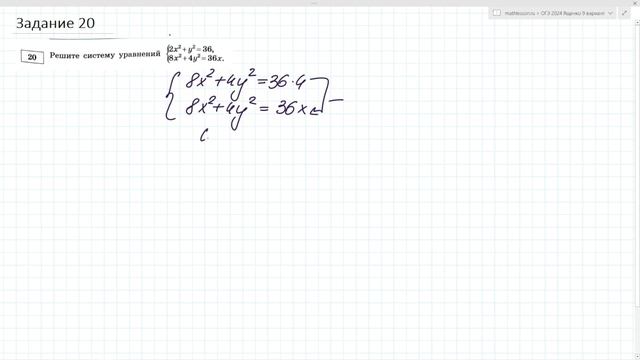 mathlesson.ru • ОГЭ 2024 Ященко 9 вариант
Задание 20
20 Решите систему уравнений {2x² + y² = 36,
{8x² + 4y² = 36x.
8x² + 4y² = 36·4
8x² + 4y² = 36x